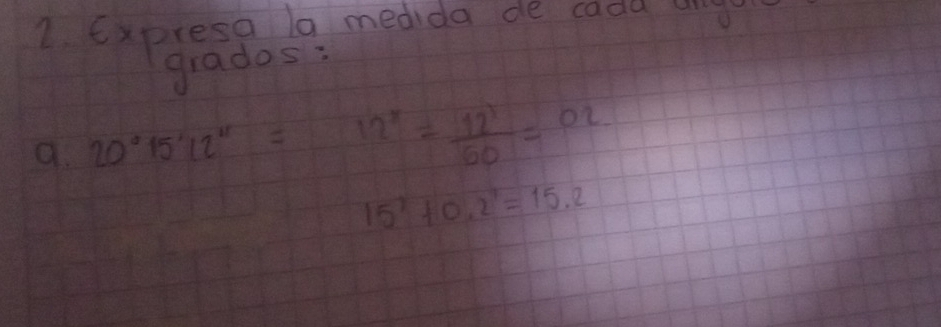 1. Expresa la medida de cada
grados:
a. 20°15'12" = 12" = 12'/60 = 02
15' + 0.2' = 15.2